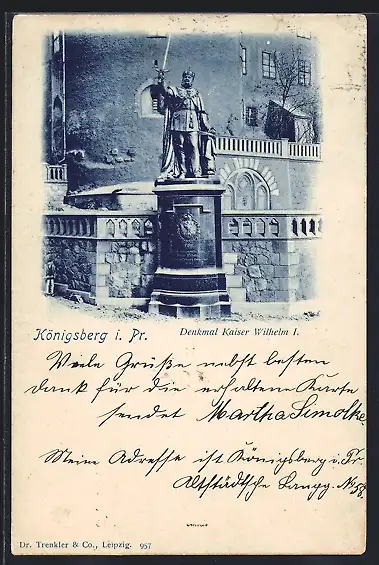 Königsberg i. Pr.
Denkmal Kaiser Wilhelm I.
Viele Grüße nebst besten
dank für die erhaltene Karte
sendet Martha Simolke.
Meine Adresse ist Königsberg i. Pr.
Altstädtsche Langg. No 58.
Dr. Trenkler & Co., Leipzig. 957